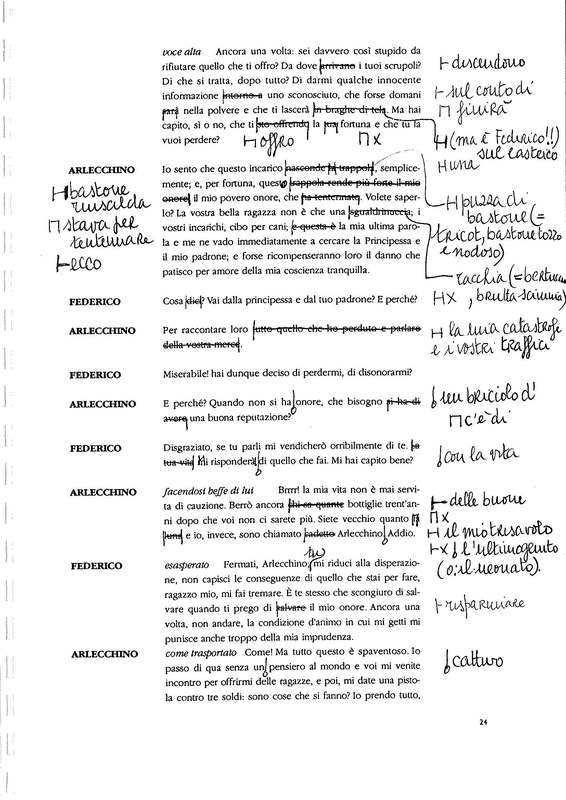 voce alta Ancora una volta: sei davvero così stupido da
rifiutare quello che ti offro? Da dove arrivano i tuoi scrupoli?
Di che si tratta, dopo tutto? Di darmi qualche innocente
informazione intorno a uno sconosciuto, che forse domani
sarà nella polvere e che ti lascerà in braghe di tela. Ma hai
capito, sì o no, che ti sto offrendo la tua fortuna e che tu la
vuoi perdere?
⊢ discendono
⊢ sul conto di
⊓ finirà
H (ma è Federico!!)
sul lastrico
H una
H offro
⊓ x
ARLECCHINO Io sento che questo incarico nasconde la trappola, semplice-
mente; e, per fortuna, questa trappola rende più forte il mio
onore, il mio povero onore, che ha tentennato. Volete saper-
lo? La vostra bella ragazza non è che una sgualdrinuccia; i
vostri incarichi, cibo per cani; e questa è la mia ultima paro-
la e me ne vado immediatamente a cercare la Principessa e
il mio padrone; e forse ricompenseranno loro il danno che
patisco per amore della mia coscienza tranquilla.
H bastone
rinsalda
⊓ stava per
tentennare
⊢ ecco
H puzza di
bastone (=
tricot, bastone tozzo
e nodoso)
racchia (= bertuccia
, brutta scimmia)
H x
FEDERICO Cosa dici? Vai dalla principessa e dal tuo padrone? E perché?
ARLECCHINO Per raccontare loro tutto quello che ho perduto e parlare
della vostra mercé.
H la mia catastrofe
e i vostri traffici
FEDERICO Miserabile! hai dunque deciso di perdermi, di disonorarmi?
ARLECCHINO E perché? Quando non si ha onore, che bisogno si ha di
avere una buona reputazione?
un briciolo d'
⊓ c'è di
FEDERICO Disgraziato, se tu parli mi vendicherò orribilmente di te. La
tua vita mi risponderà di quello che fai. Mi hai capito bene?
con la vita
ARLECCHINO facendosi beffe di lui Brrrr! la mia vita non è mai servi-
ta di cauzione. Berrò ancora chi sa quante bottiglie trent'an-
ni dopo che voi non ci sarete più. Siete vecchio quanto la
luna e io, invece, sono chiamato cadetto Arlecchino. Addio.
⊢ delle buone
⊓ x
H il mio trisavolo
⊢ x l'ultimogenito
(o: il neonato).
FEDERICO esasperato Fermati, Arlecchino, mi riduci alla disperazio-
ne, non capisci le conseguenze di quello che stai per fare,
ragazzo mio, mi fai tremare. È te stesso che scongiuro di sal-
vare quando ti prego di salvare il mio onore. Ancora una
volta, non andare, la condizione d'animo in cui mi getti mi
punisce anche troppo della mia imprudenza.
tu
⊢ risparmiare
ARLECCHINO come trasportato Come! Ma tutto questo è spaventoso. Io
passo di qua senza un pensiero al mondo e voi mi venite
incontro per offrirmi delle ragazze, e poi, mi date una pisto-
la contro tre soldi: sono cose che si fanno? Io prendo tutto,
cattivo
24